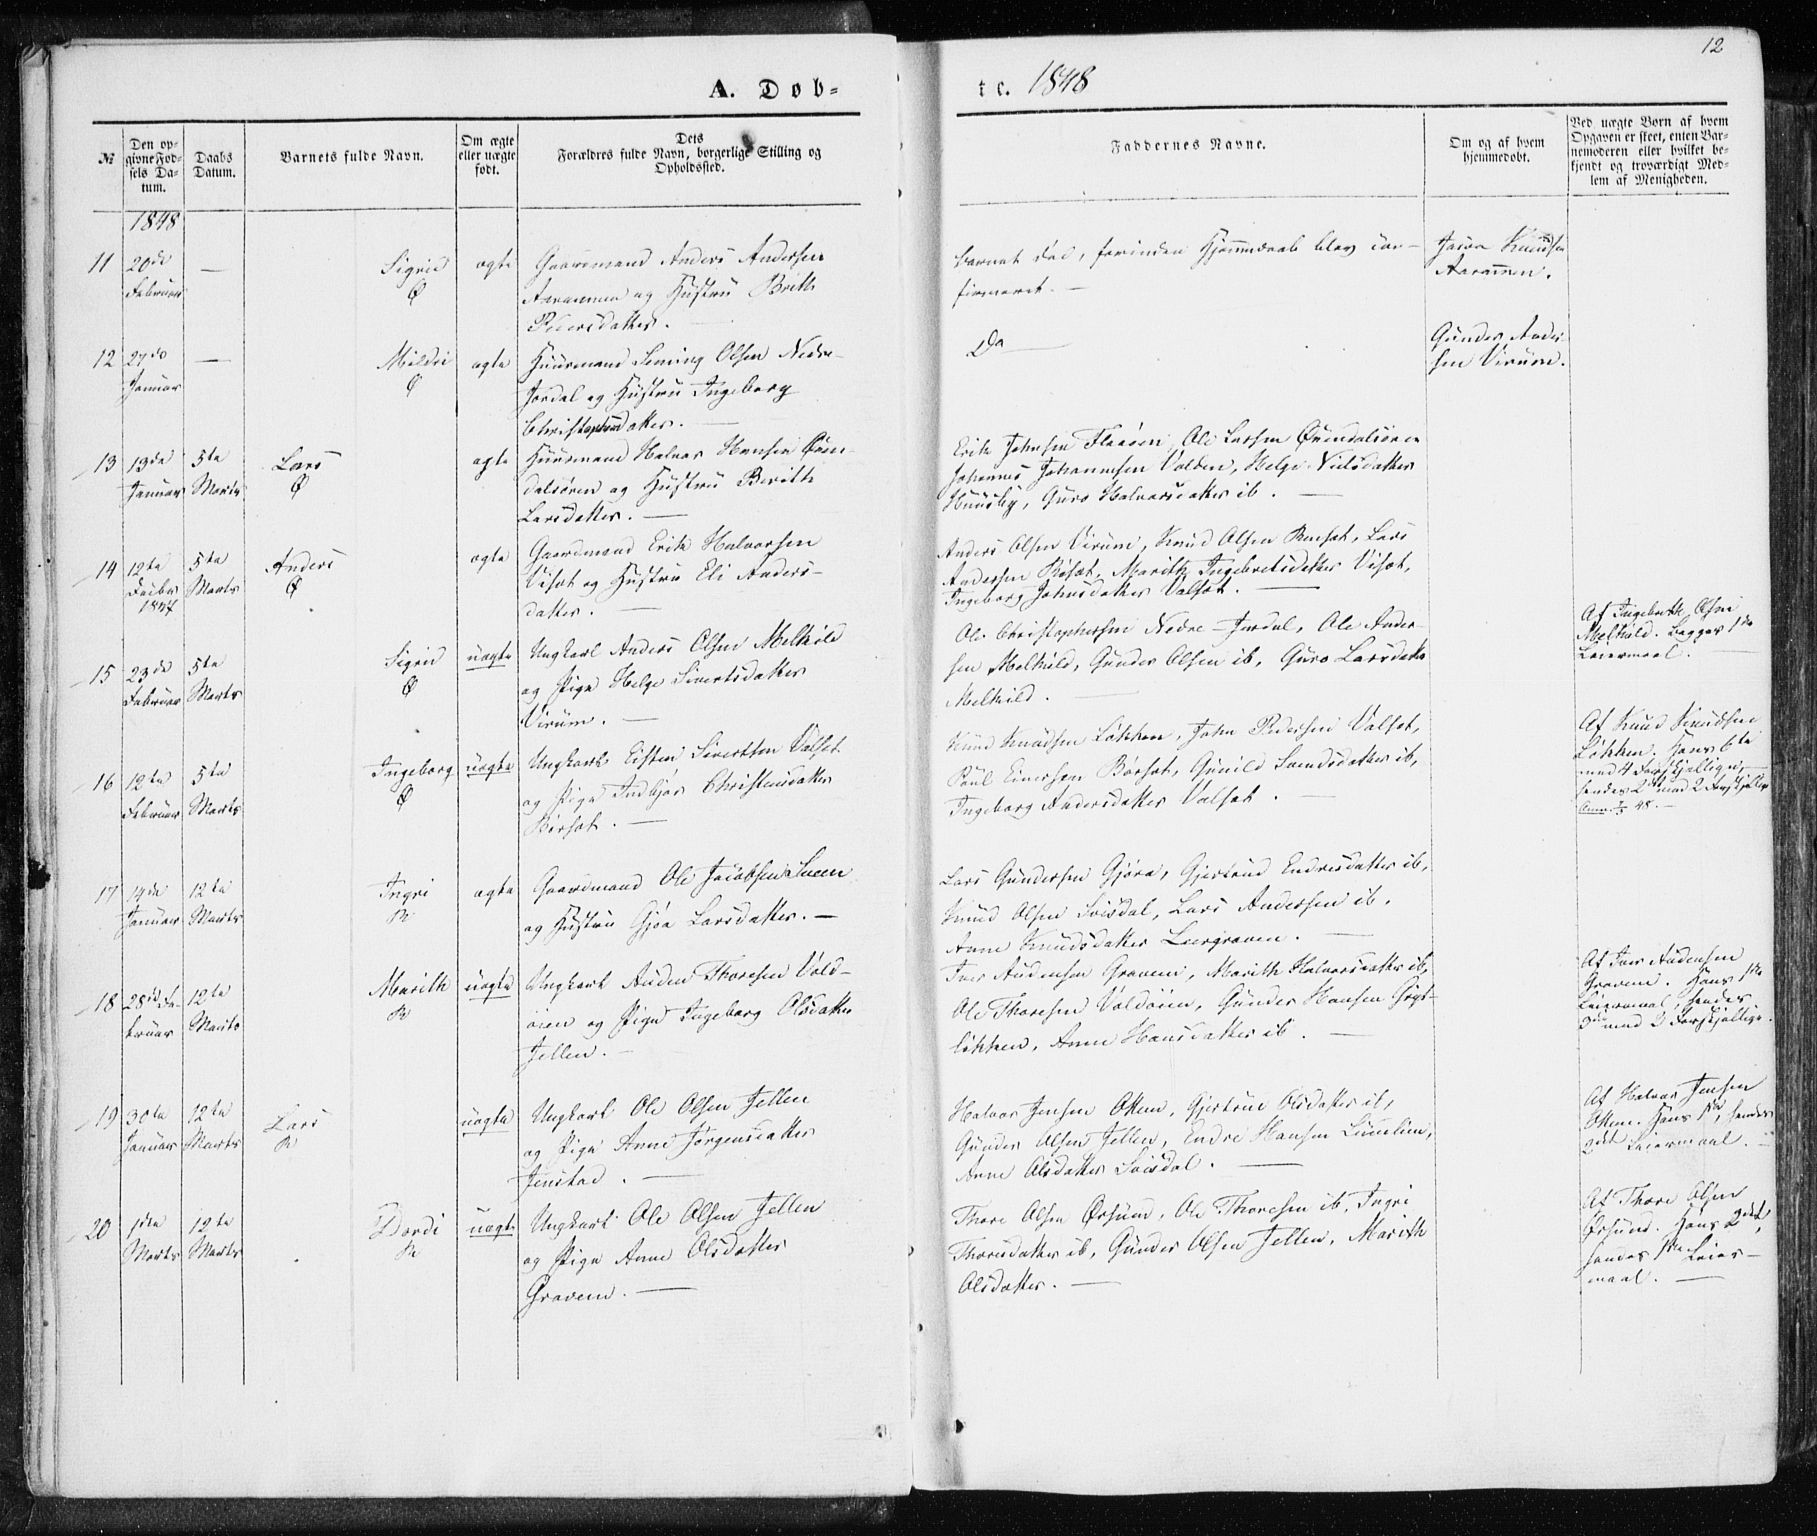 12
A. Døb-
te. 1848
№
Den op-
givne Fød-
sels Da-
tum.
Daabs
Datum.
Barnets fulde Navn.
Om ægte
eller uægte
født.
Dets
Forældres fulde Navn, borgerlige Stilling og
Opholdssted.
Faddernes Navne.
Om og af hvem
hjemmedøbt.
Ved uægte Børn af hvem
Opgaven er skeet, enten Bar-
nemoderen eller hvilket be-
kjendt og troværdigt Med-
lem af Menigheden.
1848
11 20de — Sigrid ægte Gaardmand Anders Andersen
Februar Ø Aarammen og Hustru Brith
Pedersdatter. —
Barnet død, forinden Hjemmedaab blev con-
firmeret. —
Knudsen
Aarammen.
12 27de — Mildri ægte Huusmand Olsen Nedre-
Januar Ø Jordal og Hustru Ingeborg
Christophersdatter. —
Do —
Gunder Ander-
sen Virum.
13 13de 5te Lars ægte Huusmand Halvor Hansen Øven-
Januar Marts Ø dalsøren og Hustru Berith
Larsdatter. —
Erik Johnsen Flaaøen, Ole Larsen
Johannes Johannesen Volden, Helge Nielsdatter
Huusby, Guro Halvorsdatter ib. —
14 12te 5te Anders ægte Gaardmand Erik Halvorsen
Decbr Marts Ø Viset og Hustru Eli Anders-
1847 datter. —
Anders Olsen Virum, Knud Olsen Renset, Lars
Andersen Røset, Marith Ingebretsdatter Viset,
Ingeborg Johnsdatter Valset. —
15 23de 5te Sigrid uægte Ungkarl Anders Olsen Melkild
Februar Marts Ø og Pige Helge Sivertsdatter
Virum. —
Ole Christophersen Nedre-Jordal, Ole Ander-
sen Melkild, Gunder Olsen ib, Guro Larsdatter
Melkild. —
Af Olsen
Melkild. Begges 1ste
Leiermaal. —
16 12te 5te Ingeborg uægte Ungkarl Eisten Sivertsen Valset
Februar Marts Ø og Pige Indbjør Christensdatter
Børset. —
Knud Knudsen Løkken, John Pedersen Valset,
Poul Einersen Børset, Gunild Svendsdatter ib,
Ingeborg Andersdatter Valset. —
Af Knud Knudsen
Løkken. Hans 6te
med 4 Forskjellige,
hendes 2det med 2 Forskjellige
Anm. 5/3 48. —
17 14de 12te Ingri ægte Gaardmand Ole Jacobsen Sneen
Januar Marts R og Hustru Gjøa Larsdatter. —
Lars Gundersen Gjøra, Gjertrud Endresdatter ib,
Knud Olsen Svisdal, Lars Andersen ib,
Anne Knudsdatter Leergraven. —
18 28de Fe- 12te Marith uægte Ungkarl Auden Thoresen Vold-
bruar Marts R øien og Pige Ingeborg Olsdatter
Jellen. —
Iver Audensen Graven, Marith Halvorsdatter ib,
Ole Thoresen Voldøien, Gunder Hansen
løkken, Anne Hansdatter ib. —
Af Iver Audensen
Graven. Hans 1ste
Leiermaal, hendes
3die med 2 Forskjellige.
19 30te 12te Lars uægte Ungkarl Ole Olsen Jellen
Januar Marts R og Pige Anne Jørgensdatter
Jenstad. —
Halvor Jensen Ottem, Gjertrud Olsdatter ib,
Gunder Olsen Jellen, Endre Hansen
Anne Olsdatter Svisdal. —
Af Halvor Jensen
Ottem. Hans 1ste, hendes
2det Leiermaal. —
20 1ste 12te Dordi uægte Ungkarl Ole Olsen Jellen
Marts Marts R og Pige Anne Olsdatter
Graven. —
Thore Olsen Ørsund, Ole Thoresen ib, Ingri
Thoresdatter ib, Gunder Olsen Jellen, Marith
Olsdatter. —
Af Thore Olsen
Ørsund. Hans 2det,
hendes 1ste Leier-
maal. —